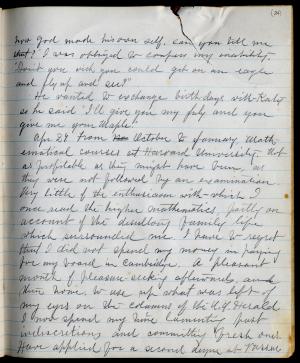 (36)
how God made his own self. Can you tell me
that? I was obliged to confess my inability.
"Don't you wish you could get on an eagle
and fly up and see?"
He wanted to exchange birthdays with Katy
so he said "I'll give you my July and you
give me your
Apr. 28 From October to January. Math-
ematical courses at Harvard University. Not
as profitable as they might have been, as
they were not followed by an examination
Very little of the enthusiasm with which I
once read the higher mathematics, partly on
account of the desultory family life
which surrounded me. I have to regret
that I did not spend my money in paying
for my board in Cambridge. A pleasant
month of pleasure seeking afterwards, and
then home to use up what was left of
my eyes on the columns of the N.Y. Herald.
I now spend my time lamenting past
indiscretions and committing fresh ones
Have applied for a second degree at